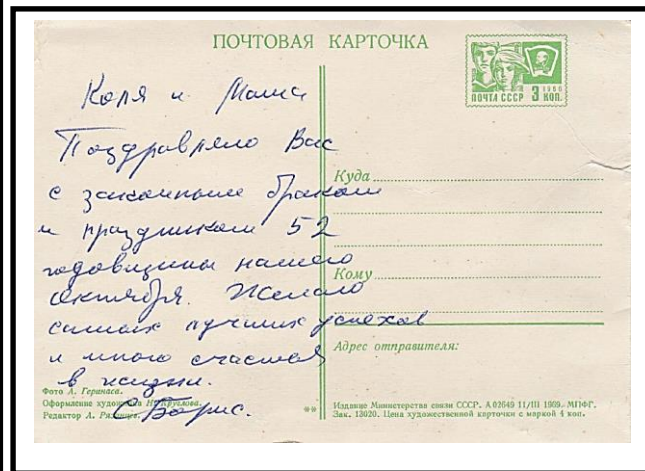 ПОЧТОВАЯ КАРТОЧКА
1966
ПОЧТА СССР 3 КОП.
Коля и Маша
Поздравляю Вас
с законным браком
и праздником 52
годовщины нашего
октября. Желаю
самых лучших успехов
и много счастья
в жизни.
Борис.
Куда
Кому
Адрес отправителя:
Фото А. Геринаса.
Оформление художника Н. Круглова.
Редактор А. Рязанцев.
**
Издание Министерства связи СССР. А 02649 11/III 1969. МПФГ.
Зак. 13020. Цена художественной карточки с маркой 4 коп.